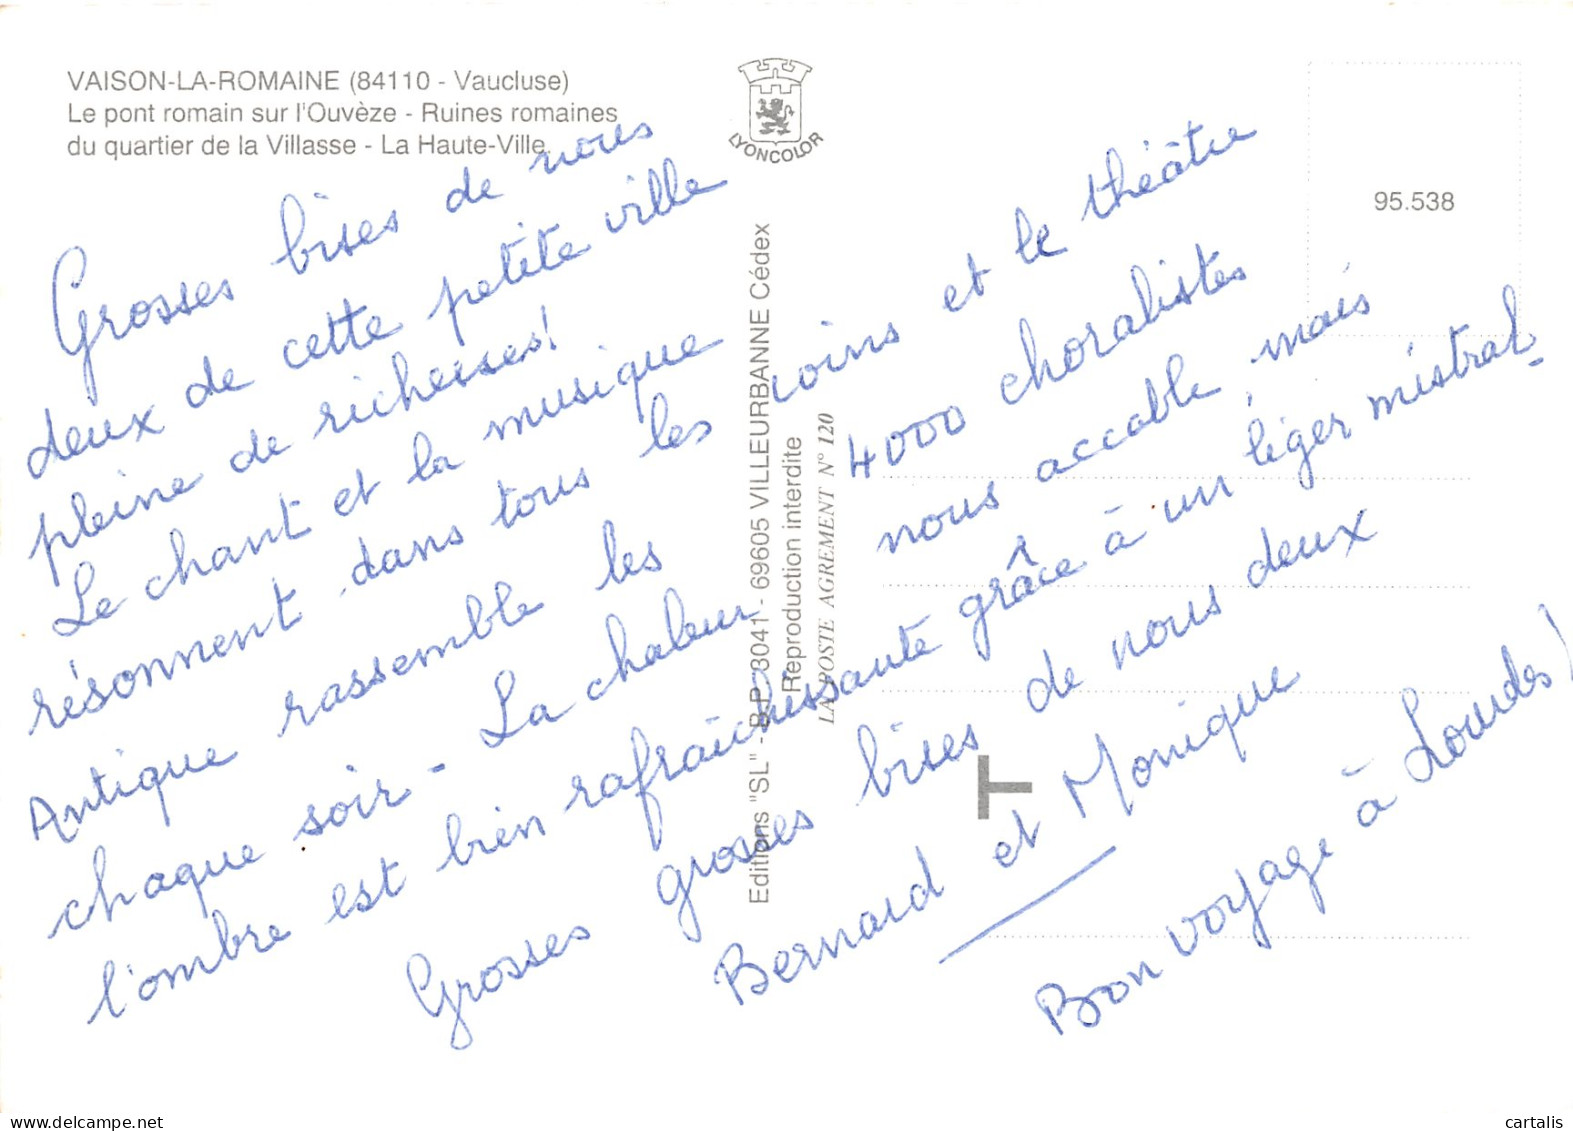 VAISON-LA-ROMAINE (84110 - Vaucluse)
Le pont romain sur l'Ouvèze - Ruines romaines
du quartier de la Villasse - La Haute-Ville.
LYONCOLOR
95.538
Grosses bises de nous
deux de cette petite ville
pleine de richesses!
Le chant et la musique
résonnent dans tous les coins et le théâtre
Antique rassemble les 4000 choralistes
chaque soir - La chaleur nous accable, mais
l'ombre est bien rafraîchissante grâce à un léger mistral.
Grosses grosses bises de nous deux
Bernard et Monique
Bon voyage à Lourdes!
Editions "SL" - B.P. 3041 - 69605 VILLEURBANNE Cédex
Reproduction interdite
LA POSTE AGREMENT N° 120
T
cartalis